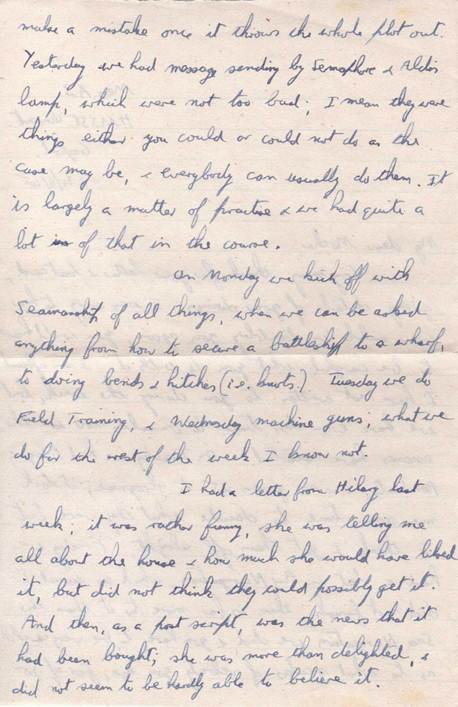 make a mistake once it throws the whole plot out.
Yesterday we had message sending by Semaphore & Aldis
lamp, which were not too bad; I mean they were
things either you could or could not do as the
case may be, & everybody can usually do them. It
is largely a matter of practise & we had quite a
lot of that in the course.
On Monday we kick off with
Seamanship of all things, when we can be asked
anything from how to secure a battleship to a wharf,
to doing bends & hitches (i.e. knots). Tuesday we do
Field Training, & Wednesday machine guns; what we
do for the rest of the week I know not.
I had a letter from Hilary last
week; it was rather funny, she was telling me
all about the house & how much she would have liked
it, but did not think they could possibly get it.
And then, as a post script, was the news that it
had been bought; she was more than delighted, &
did not seem to be hardly able to believe it.